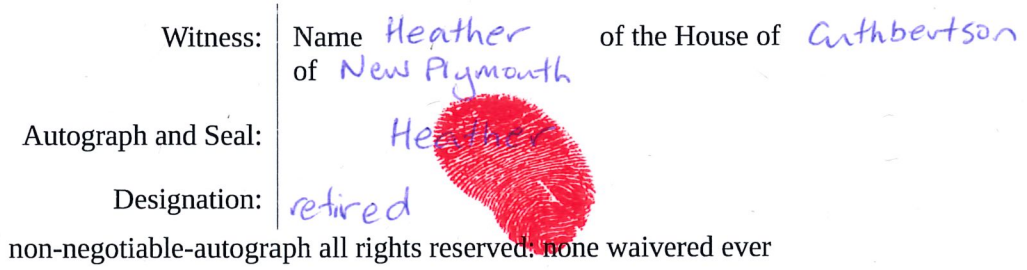 Witness: Name Heather of the House of Cuthbertson
of New Plymouth
Autograph and Seal: Heather
Designation: retired
non-negotiable-autograph all rights reserved: none waivered ever